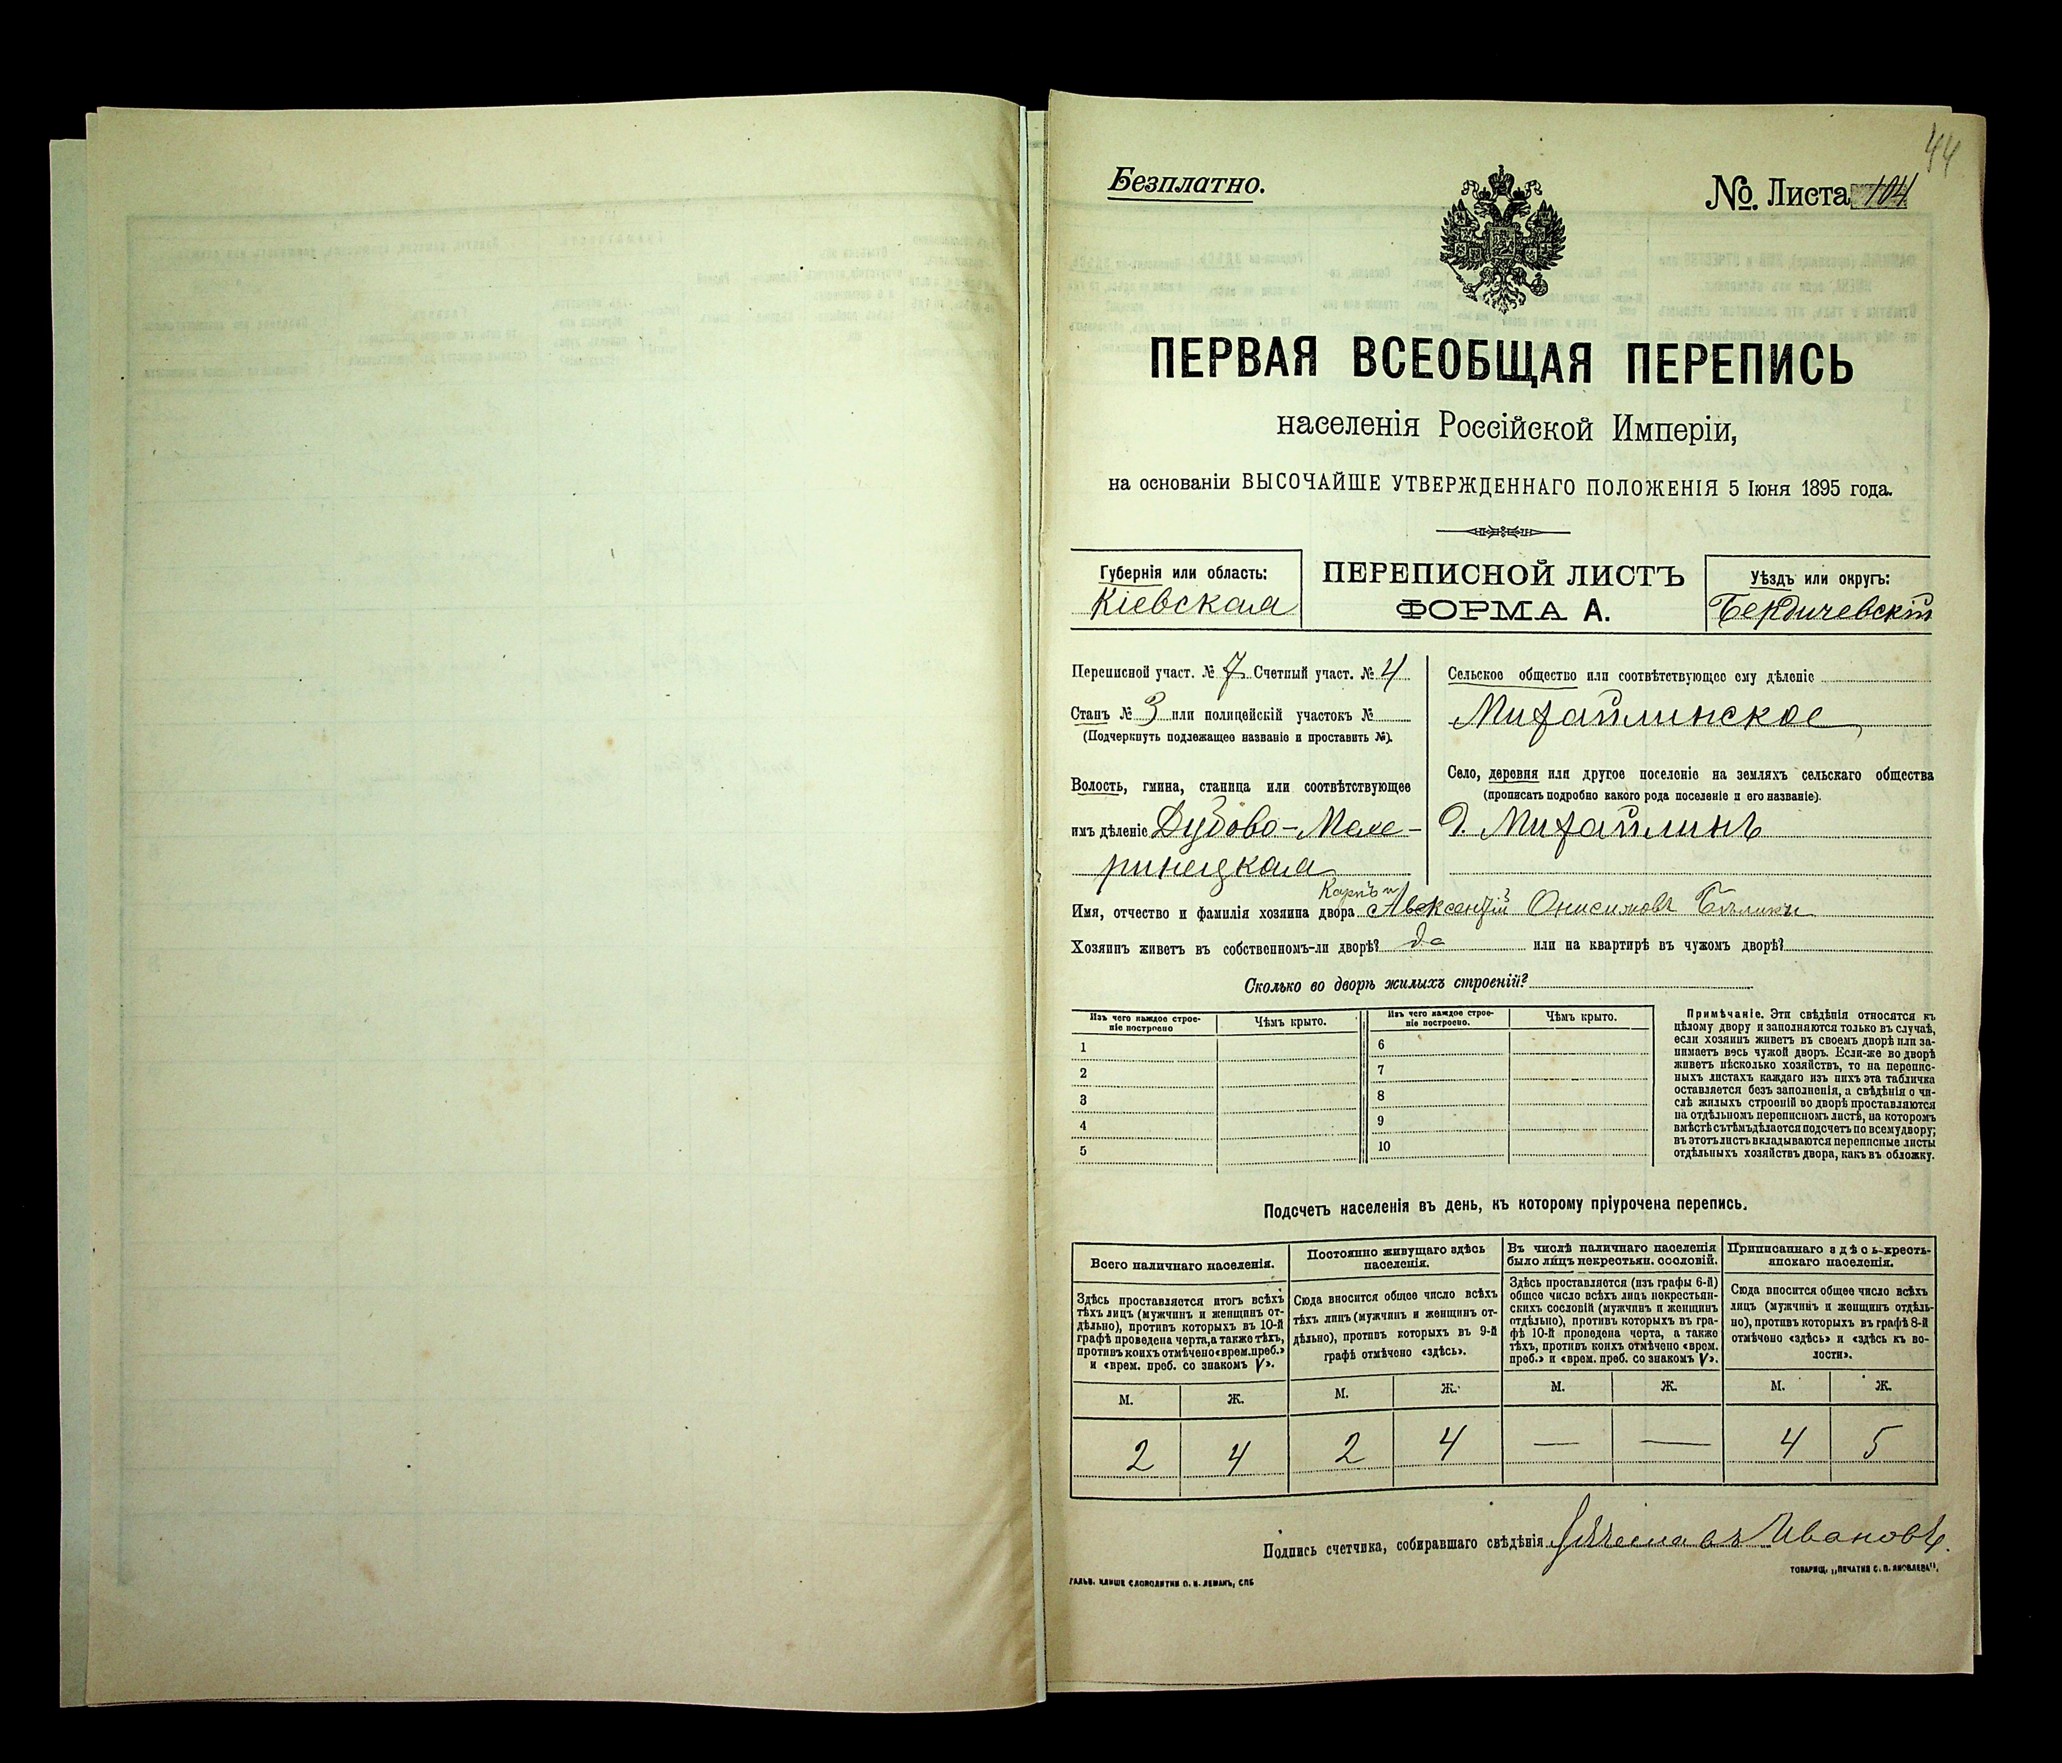 44
Безплатно.
№. Листа 104
ПЕРВАЯ ВСЕОБЩАЯ ПЕРЕПИСЬ
населенія Россійской Имперіи,
на основаніи ВЫСОЧАЙШЕ УТВЕРЖДЕННАГО ПОЛОЖЕНІЯ 5 Іюня 1895 года.
Губернія или область:
Кіевская
ПЕРЕПИСНОЙ ЛИСТЪ
ФОРМА А.
Уѣздъ или округъ:
Бердичевскій
Переписной участ. № 7 Счетный участ. № 4
Станъ № 3 или полицейскій участокъ №
(Подчеркнуть подлежащее названіе и проставить №).
Волость, гмина, станица или соотвѣтствующее
имъ дѣленіе Дубово-Мехе-
ринецкая
Сельское общество или соотвѣтствующее ему дѣленіе
Михайлинское
Село, деревня или другое поселеніе на земляхъ сельскаго общества
(прописать подробно какого рода поселеніе и его названіе).
д. Михайлинъ
Карпъ и
Имя, отчество и фамилія хозяина двора Авксентій Онисимовъ
Хозяинъ живетъ въ собственномъ-ли дворѣ? да или на квартирѣ въ чужомъ дворѣ?
Сколько во дворѣ жилыхъ строеній?
Изъ чего каждое строе-
ніе построено
Чѣмъ крыто.
Изъ чего каждое строе-
ніе построено.
Чѣмъ крыто.
1
2
3
4
5
6
7
8
9
10
Примѣчаніе. Эти свѣдѣнія относятся къ
цѣлому двору и заполняются только въ случаѣ,
если хозяинъ живетъ въ своемъ дворѣ или за-
нимаетъ весь чужой дворъ. Если-же во дворѣ
живетъ нѣсколько хозяйствъ, то на перепис-
ныхъ листахъ каждаго изъ нихъ эта табличка
оставляется безъ заполненія, а свѣдѣнія о чи-
слѣ жилыхъ строеній во дворѣ проставляются
на отдѣльномъ переписномъ листѣ, на которомъ
вмѣстѣ съ тѣмъ дѣлается подсчетъ по всему двору;
въ этотъ листъ вкладываются переписные листы
отдѣльныхъ хозяйствъ двора, какъ въ обложку.
Подсчетъ населенія въ день, къ которому пріурочена перепись.
Всего наличнаго населенія.
Здѣсь проставляется итогъ всѣхъ
тѣхъ лицъ (мужчинъ и женщинъ от-
дѣльно), противъ которыхъ въ 10-й
графѣ проведена черта, а также тѣхъ,
противъ коихъ отмѣчено «врем. преб.»
и «врем. преб. со знакомъ V».
Постоянно живущаго здѣсь
населенія.
Сюда вносится общее число всѣхъ
тѣхъ лицъ (мужчинъ и женщинъ от-
дѣльно), противъ которыхъ въ 9-й
графѣ отмѣчено «здѣсь».
Въ числѣ наличнаго населенія
было лицъ некрестьян. сословій.
Здѣсь проставляется (изъ графы 6-й)
общее число всѣхъ лицъ некрестьян-
скихъ сословій (мужчинъ и женщинъ
отдѣльно), противъ которыхъ въ гра-
фѣ 10-й проведена черта, а также
тѣхъ, противъ коихъ отмѣчено «врем.
преб.» и «врем. преб. со знакомъ V».
Приписаннаго здѣсь кресть-
янскаго населенія.
Сюда вносится общее число всѣхъ
лицъ (мужчинъ и женщинъ отдѣль-
но), противъ которыхъ въ графѣ 8-й
отмѣчено «здѣсь» и «здѣсь къ во-
лости».
М. Ж. М. Ж. М. Ж. М. Ж.
2 4 2 4 — — 4 5
Подпись счетчика, собиравшаго свѣдѣнія Ивановъ.
ГАЛЬВ. КЛИШЕ СЛОВОЛИТНИ О. И. ЛЕМАНЪ, СПБ
ТОВАРИЩ. „ПЕЧАТНЯ С. П. ЯКОВЛЕВА".